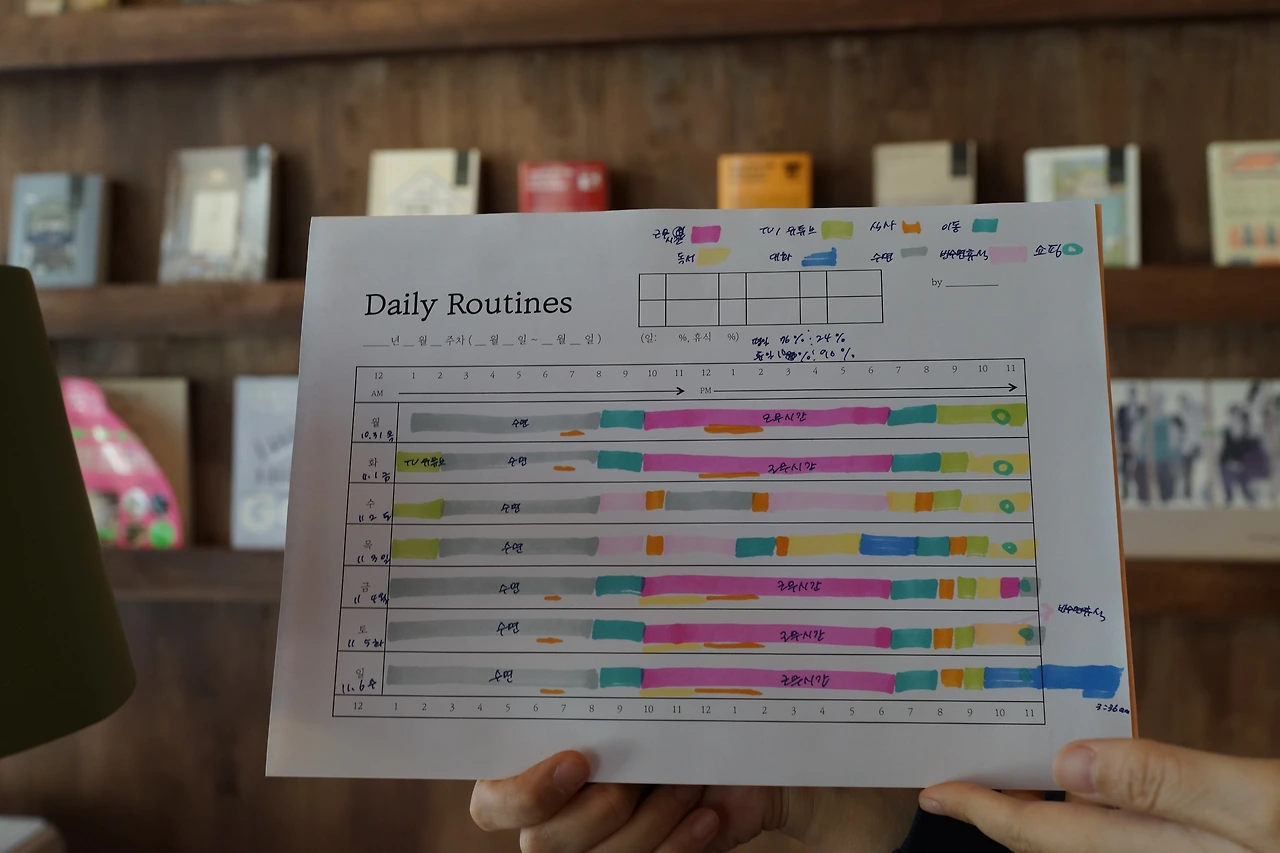 근무시간 TV/유튜브 식사 이동
독서 대화 수면 반수면휴식 쇼핑
Daily Routines
by
년 월 주차 ( 월 일 ~ 월 일 )
(일: %, 휴식 %)
평일 76%: 24%
12 1 2 3 4 5 6 7 8 9 10 11 12 1 2 3 4 5 6 7 8 9 10 11
AM PM
월 수면 근무시간
10.31 목
화 TV 유튜브 수면 근무시간
11.1 금
수 수면
11.2 토
목 수면
11.3 일
금 수면 근무시간
11.4 월
반수면휴식
토 수면 근무시간
11.5 화
일 수면 근무시간
11.6 수
12 1 2 3 4 5 6 7 8 9 10 11 12 1 2 3 4 5 6 7 8 9 10 11
3:36am